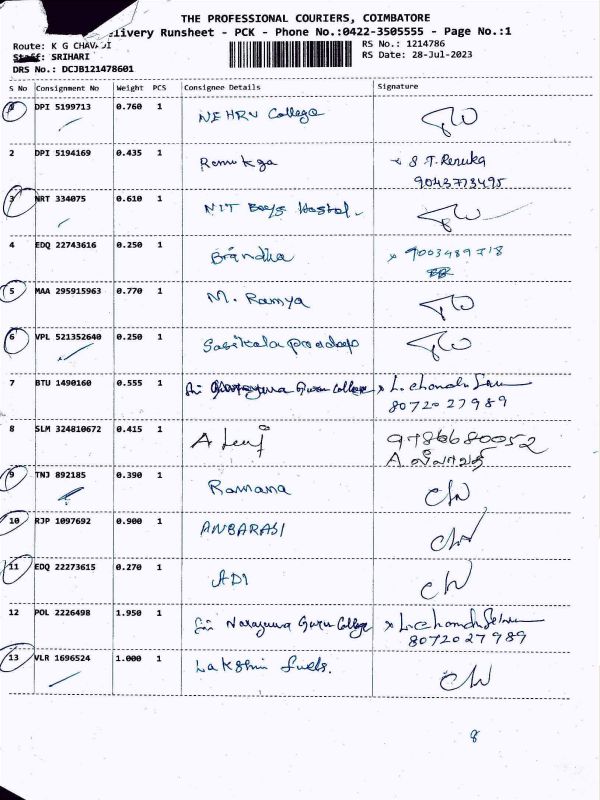 THE PROFESSIONAL COURIERS, COIMBATORE
livery Runsheet - PCK - Phone No.:0422-3505555 - Page No.:1
Route: K G CHAVADI
RS No.: 1214786
Staff: SRIHARI
RS Date: 28-Jul-2023
DRS No.: DCJB121478601
S No Consignment No Weight PCS Consignee Details Signature
1 DPI 5199713 0.760 1 NEHRU College
2 DPI 5194169 0.435 1 Renukga x S T. Renuka
9043773495
3 NRT 334075 0.610 1 NIT Boys Hostel.
4 EDQ 22743616 0.250 1 Brándha x 9003489718
5 MAA 295915963 0.770 1 M. Ramya
6 VPL 521352640 0.250 1 Sasikala
7 BTU 1490160 0.555 1 Sri Guru College x L. chandra
8072027989
8 SLM 324810672 0.415 1 A 9786680052
9 TNJ 892185 0.390 1 Ramana
10 RJP 1097692 0.900 1 ANBARASI
11 EDQ 22273615 0.270 1 ADI
12 POL 2226498 1.950 1 Sri Narayana Guru College x L. chandra
8072027989
13 VLR 1696524 1.000 1 Lakshmi fuells.
8